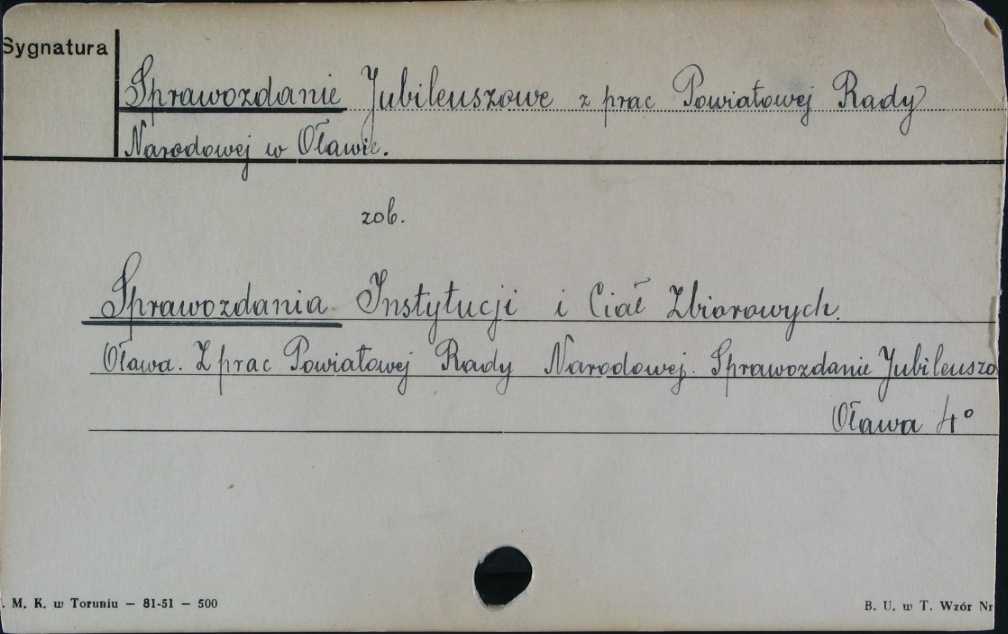 Sygnatura
Sprawozdanie Jubileuszowe z prac Powiatowej Rady
Narodowej w Oławie.
zob.
Sprawozdania Instytucji i Ciał Zbiorowych.
Oława. Z prac Powiatowej Rady Narodowej. Sprawozdanie Jubileuszo
Oława 4°
. M. K. w Toruniu — 81-51 — 500
B. U. w T. Wzór Nr